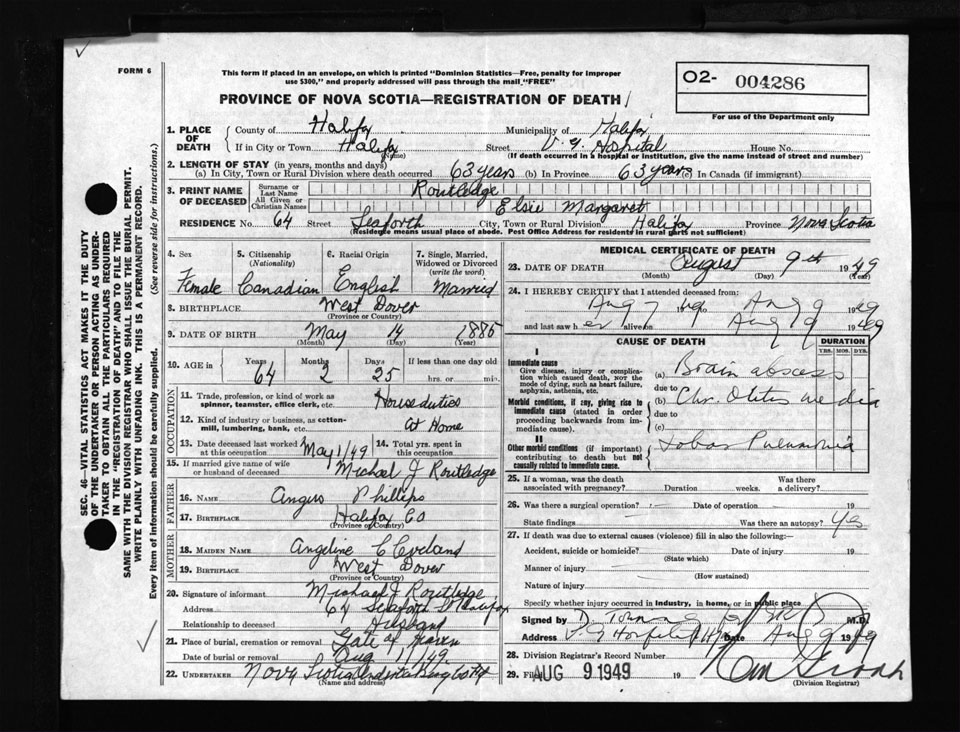 FORM 6
This form if placed in an envelope, on which is printed "Dominion Statistics—Free, penalty for improper
use $300," and properly addressed will pass through the mail "FREE"
O2- 004286
For use of the Department only
PROVINCE OF NOVA SCOTIA—REGISTRATION OF DEATH
1. PLACE OF DEATH County of Halifax Municipality of Halifax
If in City or Town Halifax (Name) Street V. G. Hospital House No.
(If death occurred in a hospital or institution, give the name instead of street and number)
2. LENGTH OF STAY (in years, months and days)
(a) In City, Town or Rural Division where death occurred 63 years (b) In Province 63 years (c) In Canada (if immigrant)
3. PRINT NAME OF DECEASED Surname or Last Name Routledge
All Given or Christian Names Elsie Margaret
RESIDENCE No. 64 Street Seaforth City, Town or Rural Division Halifax Province Nova Scotia
(Residence means usual place of abode. Post Office Address for residents in rural parts not sufficient)
4. Sex 5. Citizenship (Nationality) 6. Racial Origin 7. Single, Married, Widowed or Divorced (write the word)
Female Canadian English Married
8. BIRTHPLACE West Dover
(Province or Country)
9. DATE OF BIRTH May 14 1885
(Month) (Day) (Year)
10. AGE in Years Months Days If less than one day old
64 2 25 hrs. or min.
OCCUPATION
11. Trade, profession, or kind of work as spinner, teamster, office clerk, etc. House duties
12. Kind of industry or business, as cotton-mill, lumbering, bank, etc. At Home
13. Date deceased last worked at this occupation May 1/49 14. Total yrs. spent in this occupation
15. If married give name of wife or husband of deceased Michael J Routledge
FATHER
16. NAME Angus Phillips
17. BIRTHPLACE Halifax Co
(Province or Country)
MOTHER
18. MAIDEN NAME Angeline C Cleveland
19. BIRTHPLACE West Dover
(Province or Country)
20. Signature of informant Michael J. Routledge
Address 64 Seaforth St Halifax
Relationship to deceased Husband
21. Place of burial, cremation or removal Gate of Heaven
Date of burial or removal Aug 11/49
22. UNDERTAKER Nova Scotia Undertaking Co Ltd
(Name and address)
MEDICAL CERTIFICATE OF DEATH
23. DATE OF DEATH August 9th 1949
(Month) (Day) (Year)
24. I HEREBY CERTIFY that I attended deceased from:
Aug 7 49 Aug 9 1949
and last saw her alive on Aug 9 1949
CAUSE OF DEATH DURATION
YRS. MOS. DYS.
I
Immediate cause
Give disease, injury or complication which caused death, NOT the mode of dying, such as heart failure, asphyxia, asthenia, etc.
(a) Brain abscess
due to
Morbid conditions, if any, giving rise to immediate cause (stated in order proceeding backwards from immediate cause).
(b) Chr. Otitis media
due to
(c)
II
Other morbid conditions (if important) contributing to death but not causally related to immediate cause.
Lobar Pneumonia
25. If a woman, was the death associated with pregnancy? Duration weeks. Was there a delivery?
26. Was there a surgical operation? Date of operation 19
State findings Was there an autopsy? Yes
27. If death was due to external causes (violence) fill in also the following:—
Accident, suicide or homicide? Date of injury 19
(State which)
Manner of injury
(How sustained)
Nature of injury
Specify whether injury occurred in industry, in home, or in public place
Signed by M.D.
Address V G Hospital Date Aug 9 1949
28. Division Registrar's Record Number
29. Filed AUG 9 1949 19
(Division Registrar)
SEC. 46—VITAL STATISTICS ACT MAKES IT THE DUTY
OF THE UNDERTAKER OR PERSON ACTING AS UNDER-
TAKER TO OBTAIN ALL THE PARTICULARS REQUIRED
IN THE "REGISTRATION OF DEATH" AND TO FILE THE
SAME WITH THE DIVISION REGISTRAR WHO SHALL ISSUE THE BURIAL PERMIT.
WRITE PLAINLY WITH UNFADING INK. THIS IS A PERMANENT RECORD.
Every item of information should be carefully supplied. (See reverse side for instructions.)